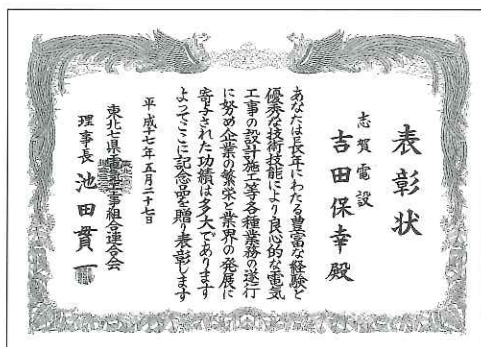 表彰状
志賀電設
吉田保幸殿
あなたは長年にわたる豊富な経験と
優秀な技術技能により良心的な電気
工事の設計施工等各種業務の遂行
に努め企業の繁栄と業界の発展に
寄与された功績は多大であります
よってここに記念品を贈り表彰します
平成十七年五月二十七日
東北七県電気工事組合連合会
理事長 池田貫一